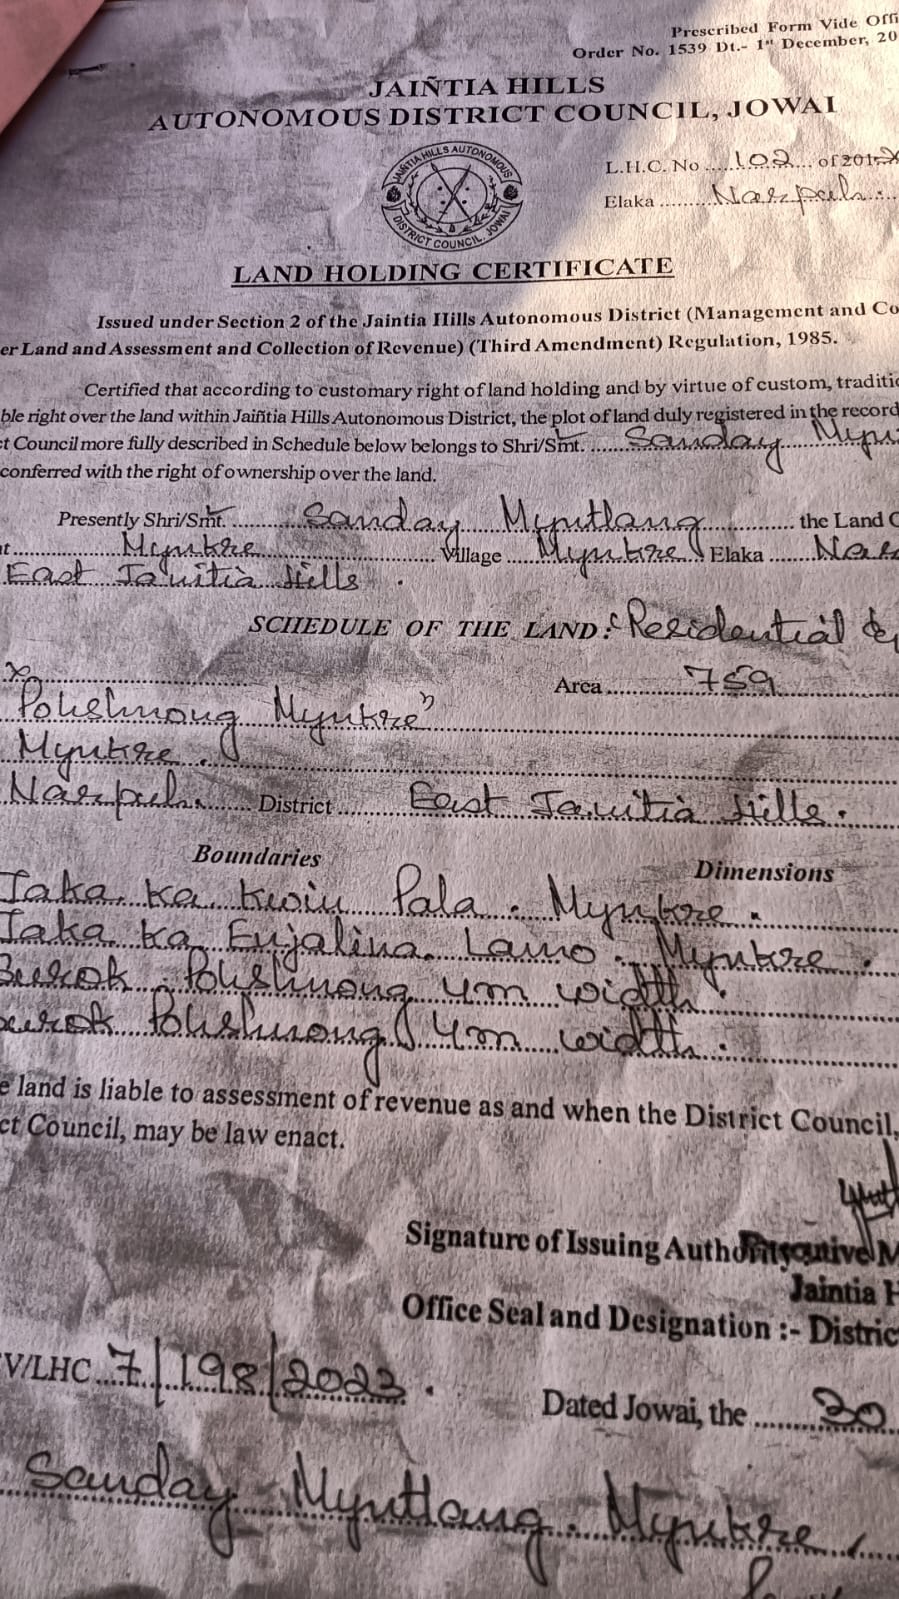 Prescribed Form Vide Offi
Order No. 1539 Dt.- 1st December, 20
JAIÑTIA HILLS
AUTONOMOUS DISTRICT COUNCIL, JOWAI
JAIÑTIA HILLS AUTONOMOUS
DISTRICT COUNCIL, JOWAI
L.H.C. No ..... 102 .... of 201
Elaka ......... Narpuh ....
LAND HOLDING CERTIFICATE
Issued under Section 2 of the Jaintia Hills Autonomous District (Management and Co
er Land and Assessment and Collection of Revenue) (Third Amendment) Regulation, 1985.
Certified that according to customary right of land holding and by virtue of custom, traditio
ble right over the land within Jaiñtia Hills Autonomous District, the plot of land duly registered in the record
ct Council more fully described in Schedule below belongs to Shri/Smt. ...... Sanday Myn
conferred with the right of ownership over the land.
Presently Shri/Smt. ......... Sanday Myntlang ............ the Land O
t ............ Mynkre ............ Village ..... Mynkre Elaka ...... Nar
East Jaintia Hills .
SCHEDULE OF THE LAND: Residential
Area ......... 759
Pohshnong Mynkre"
Mynkre .
Narpuh. ...... District ......... East Jaintia Hills .
Boundaries Dimensions
Jaka ka Pala . Mynkre .
Jaka ka Enjalina Lamo . Mynkre .
Pohshnong 4m width .
Pohshnong 4m width .
e land is liable to assessment of revenue as and when the District Council,
ct Council, may be law enact.
Signature of Issuing Authority Executive M
Jaintia H
Office Seal and Designation :- Distric
V/LHC .. 7/198/2023 .
Dated Jowai, the ........ 30
Sanday Myntlang . Mynkre ,